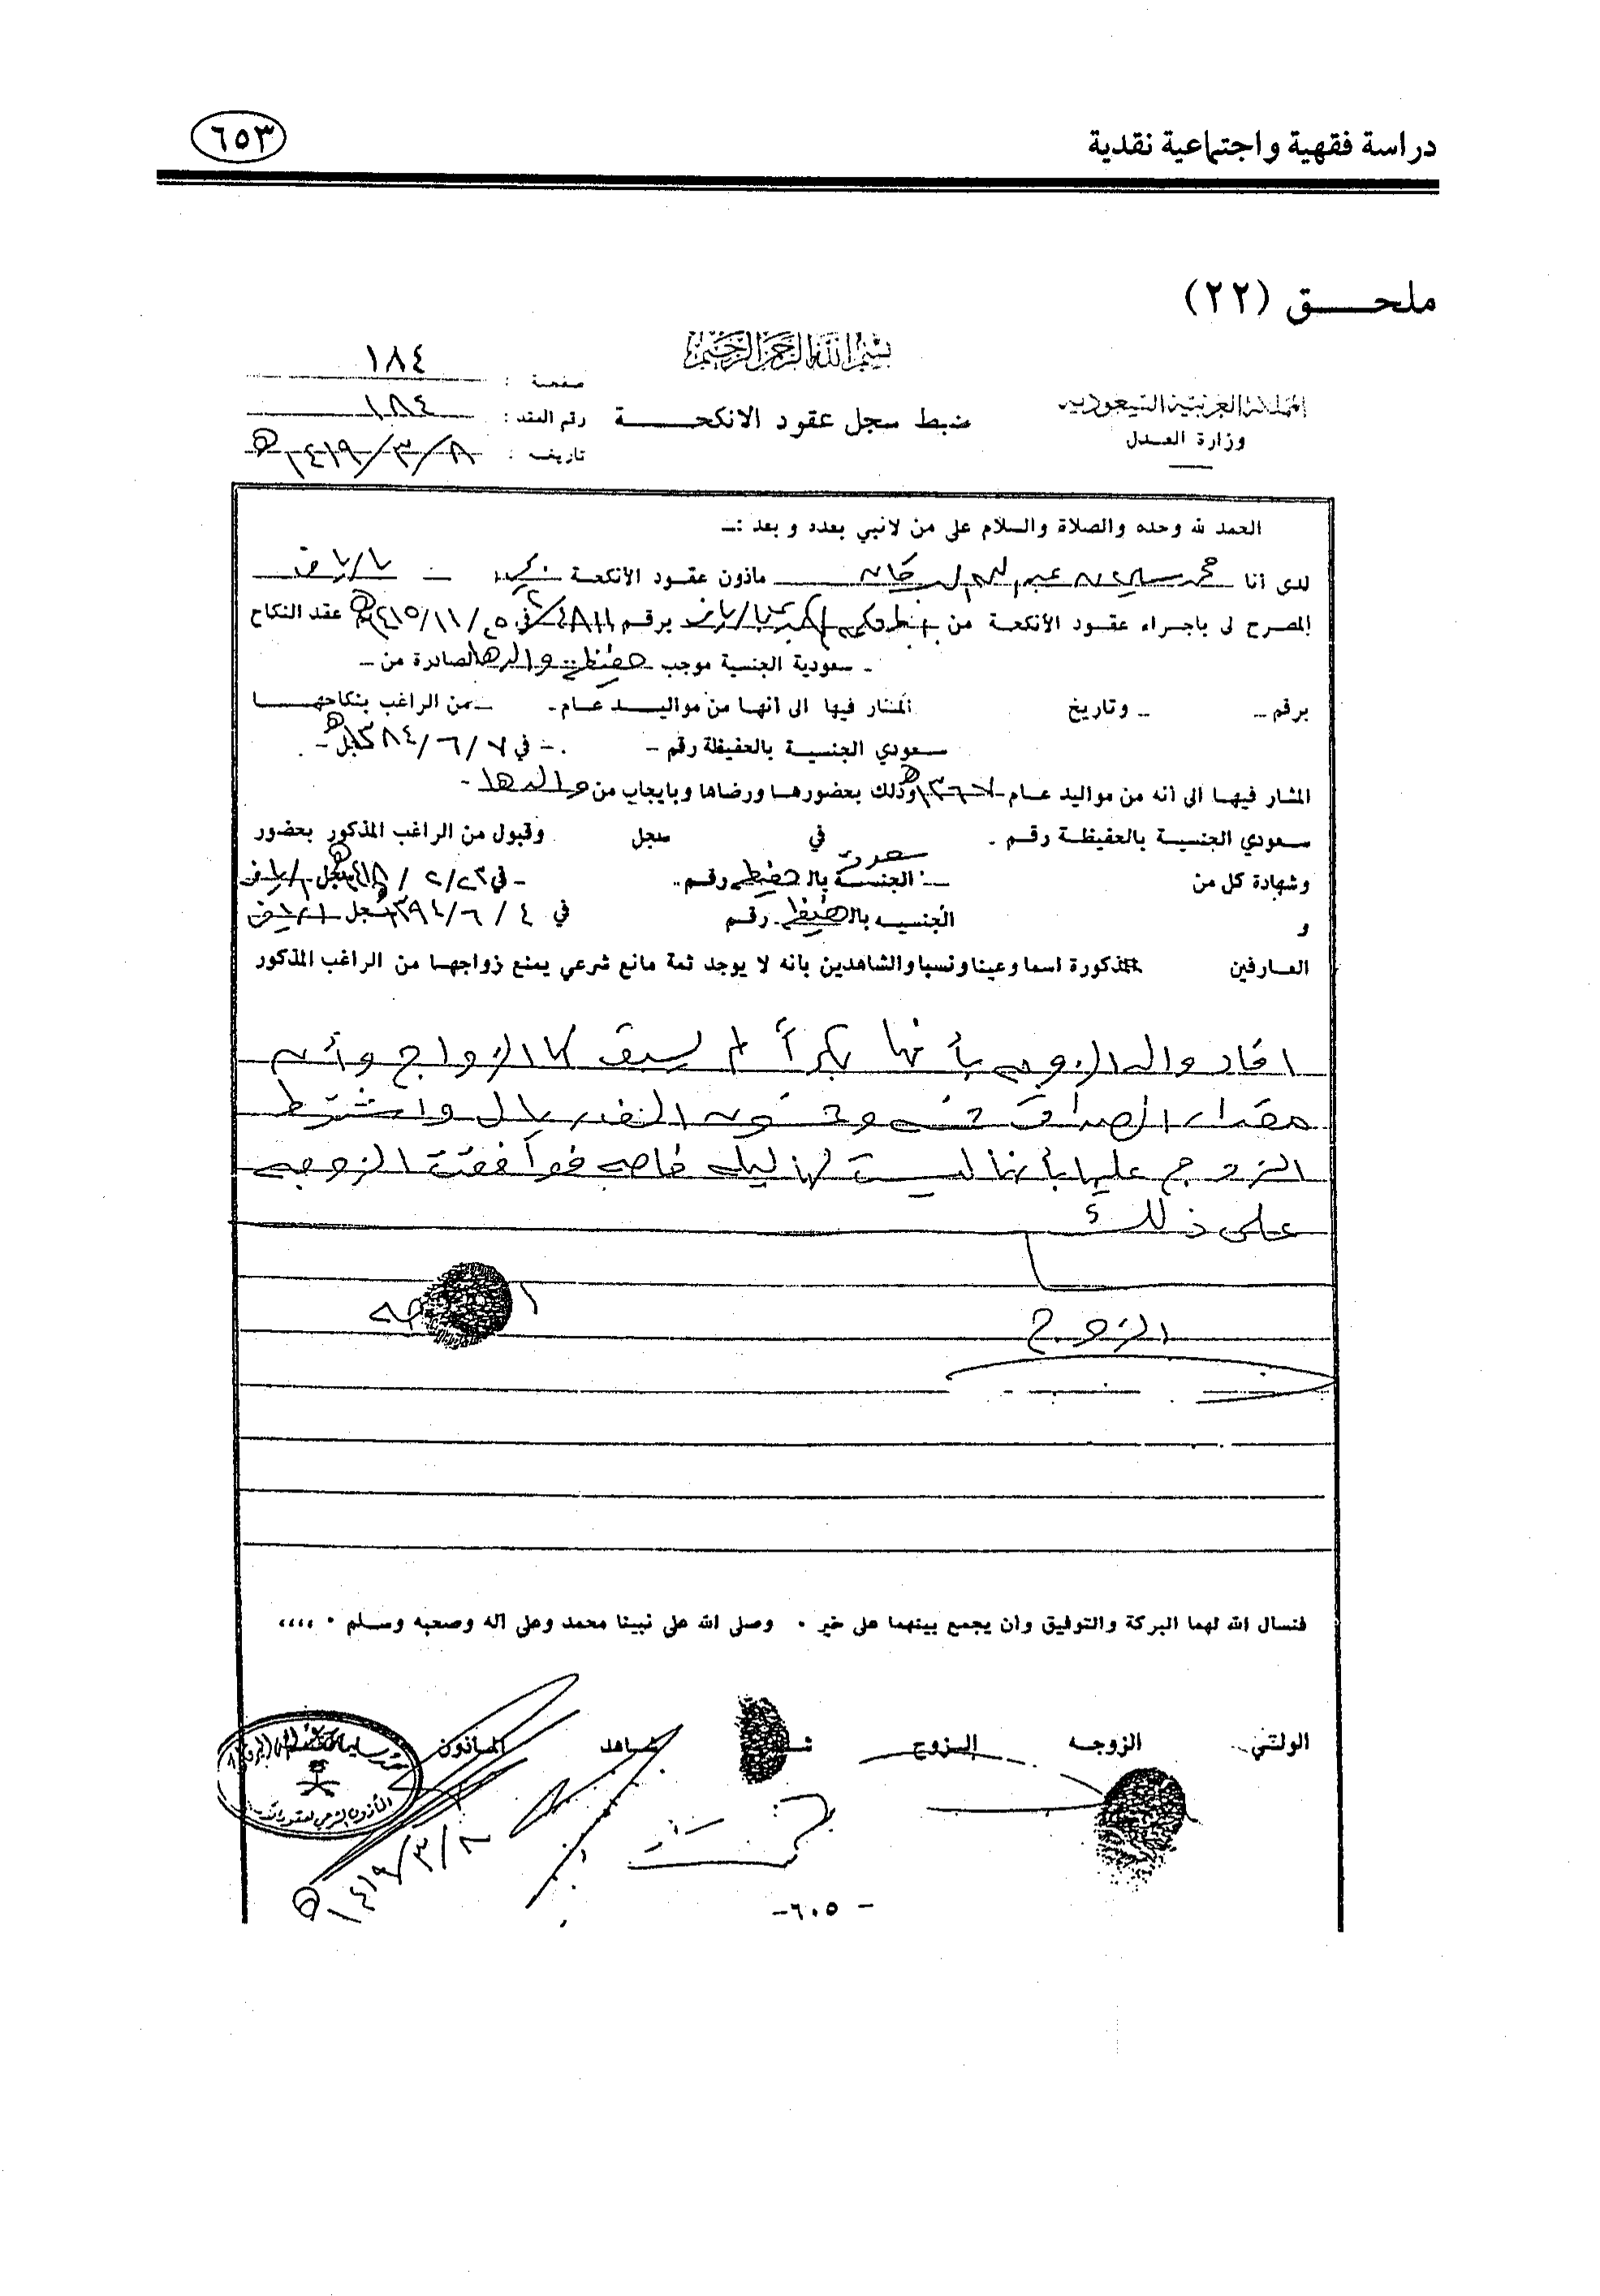 دراسة فقهية واجتماعية نقدية
٦٥٣
ملحـــــق (٢٢)
بسم الله الرحمن الرحيم
المملكة العربية السعودية
وزارة العـدل
ضبط سجل عقود الانكحـــــة
صفحـة : ١٨٤
رقم العقد : ١٨٤
تاريخـه : ١٤١٩/٣/٨هـ
الحمد لله وحده والصلاة والسلام على من لانبي بعده و بعد :ـ
لدى أنا محمد سليمان ماذون عقـود الأنكحة
المصرح لي باجـراء عقـود الأنكحة من برقم في ١٤١٥/١١/ هـ عقد النكاح
ـ سعودية الجنسية موجب حفيظة والدها الصادرة من ـ
برقم ـ ـ وتاريخ المشار فيها الى أنهـا من مواليـــد عـام ـ ـ من الراغب بنكاحهـــا
سـعودي الجنسيـة بالحفيظة رقم ـ ـ في ٨٤/٦/٧
المشار فيهـا الى أنه من مواليد عـام ـ وذلك بحضورهـا ورضاها وبايجاب من والدها ـ
سـعودي الجنسيـة بالحفيظـة رقـم ـ في سجل وقبول من الراغب المذكور بحضور
وشهادة كل من سعودي الجنسـة بالـ حفيظة رقـم ـ في سجل الرياض
و الجنسيـه بالـ حفيظة رقـم في ٤ / ٦ / سجل الرياض
العـارفين المذكورة اسما وعينا ونسبا والشاهدين بانه لا يوجد ثمة مانع شرعي يمنع زواجهـا من الراغب المذكور
افاد والد الزوجه بأنها بكراً لم يسبق لها الزواج وأنه
مقدار الصداق خمسه وخمسون الف ريال واشترط
الزوج عليها بأنها ليست لها ليله خاصه فوافقت الزوجه
على ذلك
الزوج
فنسال الله لهما البركة والتوفيق وان يجمع بينهما على خير ٠ وصلى الله على نبينا محمد وعلى آله وصحبه وسـلم ٠ ،،،،
الزوجـه الـزوج شـاهد المـاذون
١٤١٩/٣/٨هـ
ـ ٦٠٥ ـ